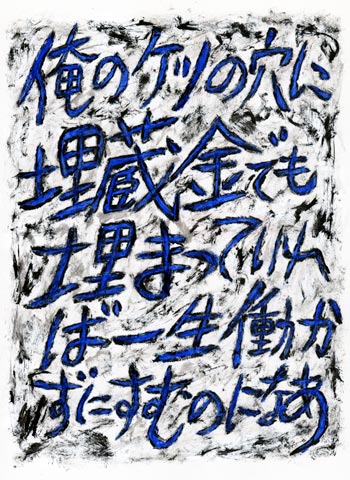 俺のケツの穴に
埋蔵金でも
埋まっていれ
ば一生働か
ずにすむのになあ